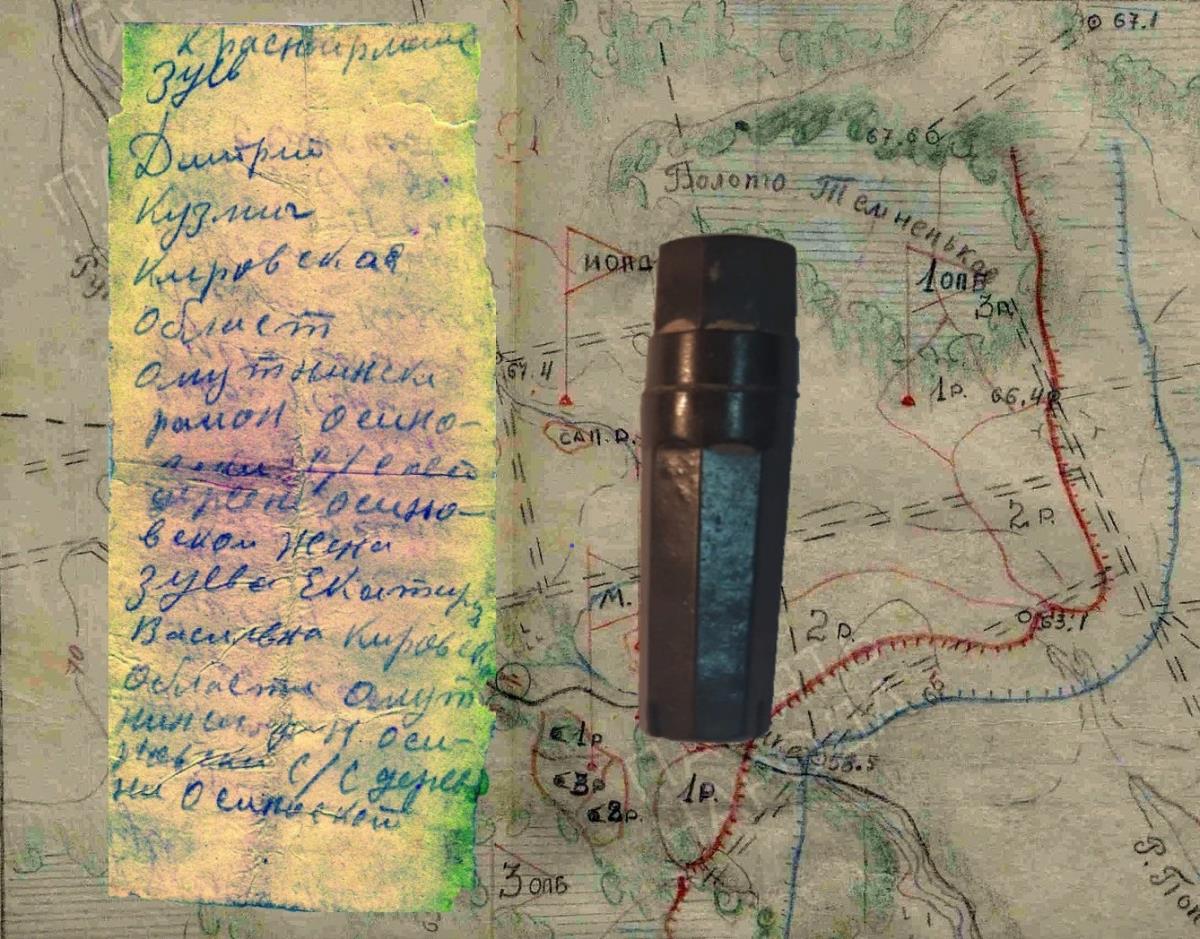 Красноирмеец
Зуев
Дмитрий
Кузмич
Кировская
Област
Омутнински
район Осино-
с/совет
дервня Осино-
вской жена
Зуева Екатир
Василевна Кировск
Области Омут
нински р-н Оси-
с/с дерев
ни Осиновской
67.1
67.6
Болото Темненькое
МОПБ
1 ОПБ
3Р.
67.4
1Р.
66.4
САП.Р.
2Р.
М.
63.1
2Р.
1Р.
3Р
2Р.
1Р.
58.5
3 ОПБ
70